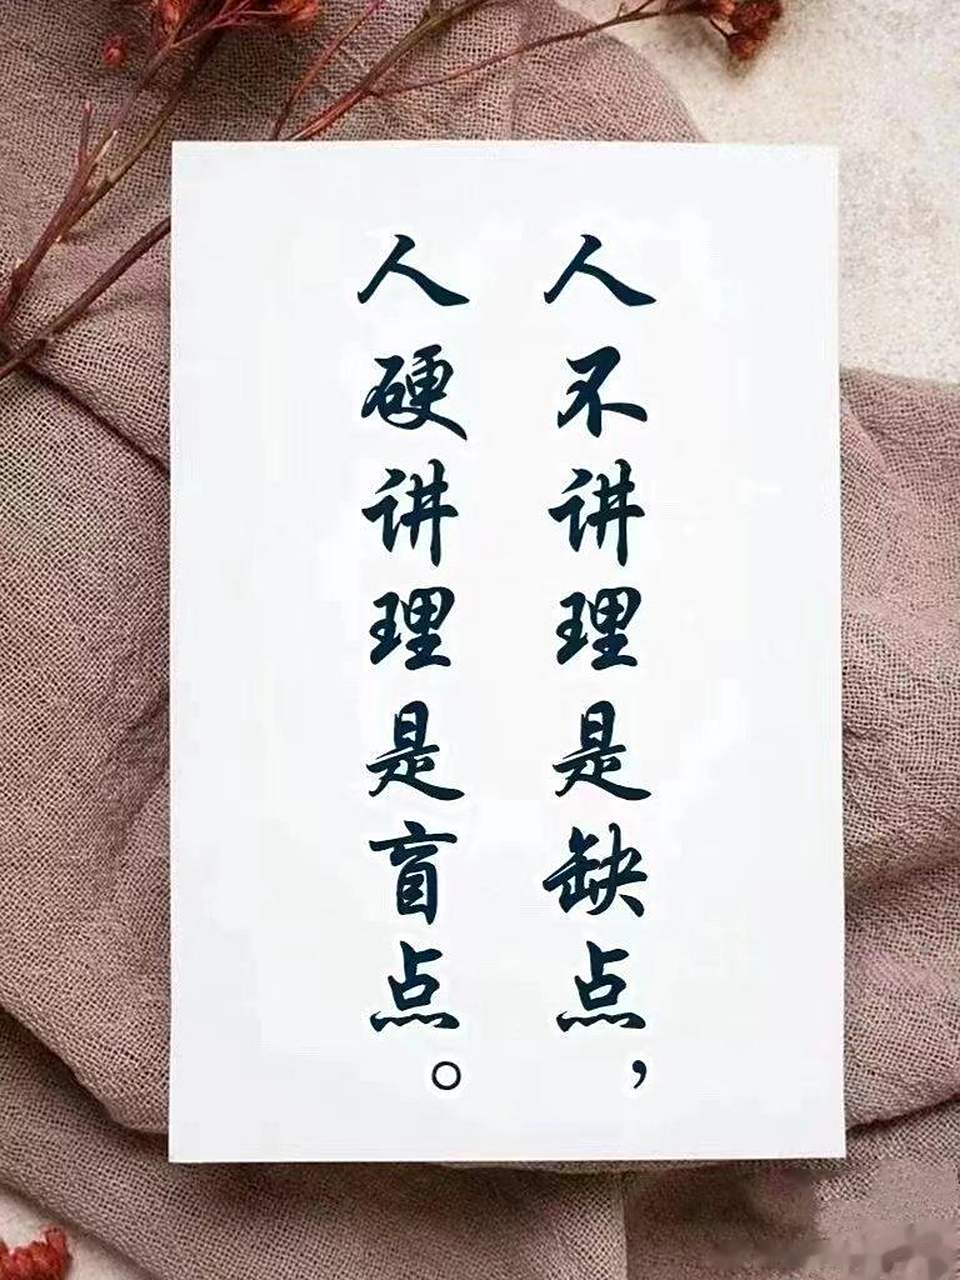 人不讲理是缺点，
人硬讲理是盲点。